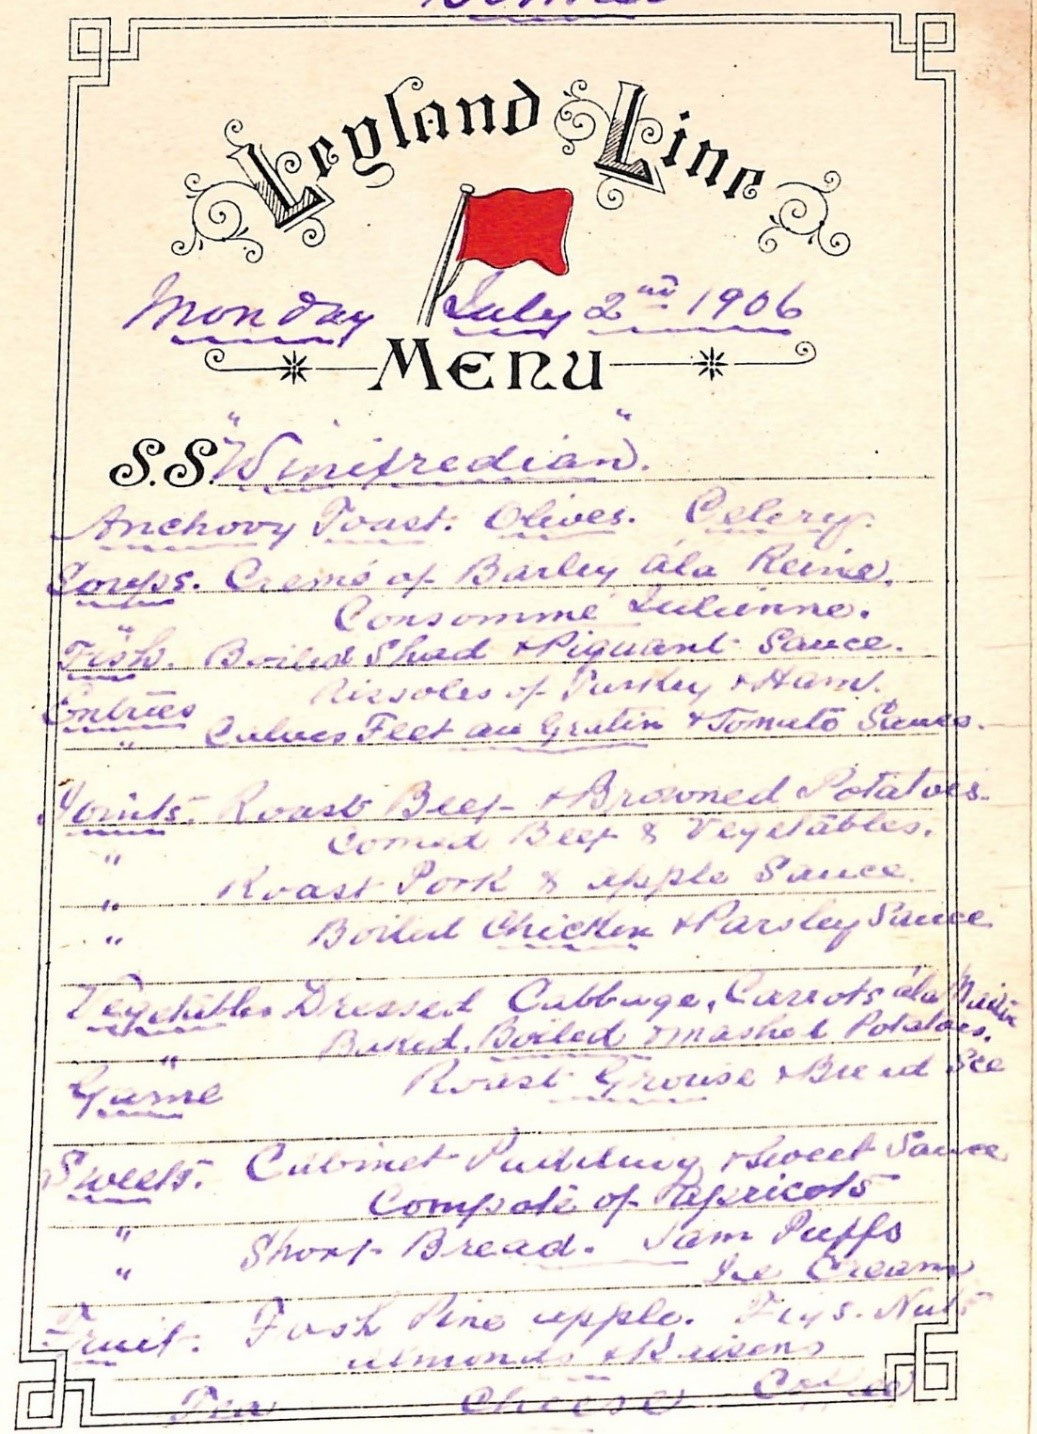 Dinner
Leyland Line
Monday July 2nd 1906
MENU
S.S. "Winifredian".
Anchovy Toast. Olives. Celery.
Soups. Cremé of Barley ála Reine.
" Consommé Julienne.
Fish. Boiled Shad & Piquant Sauce.
Entries Rissoles of Turkey & Ham.
" Calves Feet au Gratin & Tomato Sauce.
Joints. Roast Beef & Browned Potatoes.
" Corned Beef & Vegetables.
" Roast Pork & apple Sauce.
" Boiled Chicken & Parsley Sauce
Vegetables Dressed Cabbage, Carrots ála
" Baked, Boiled & mashed Potatoes.
Game Roast Grouse & Bread Sce
Sweets. Cabinet Pudding & Sweet Sauce
Compote of Apricots
" Short Bread. Jam Puffs
" Ice Cream
Fruit. Fresh Pine apple. Figs. Nuts
almonds & Raisens
Tea Cheese Coffee